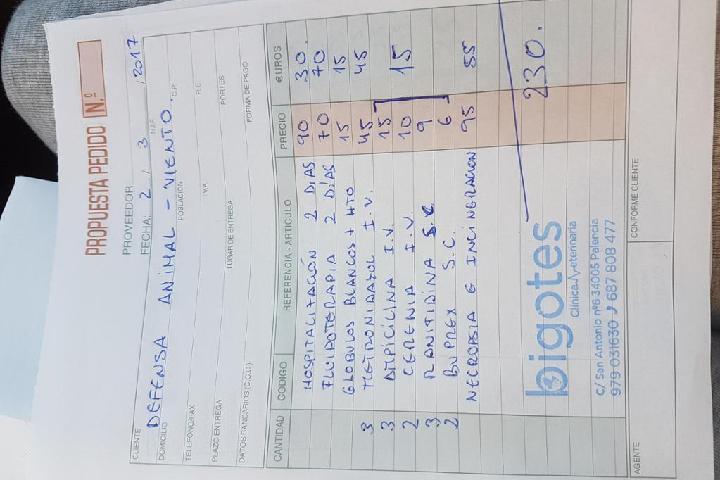 PROPUESTA PEDIDO N.º
PROVEEDOR
FECHA: 2 / 3 / 2017
CLIENTE DEFENSA ANIMAL - VIENTO.
DOMICILIO POBLACIÓN C.P.
TELÉFONO/FAX
PLAZO ENTREGA LUGAR DE ENTREGA PORTES
DATOS BANCARIOS (C.C.C.) FORMA DE PAGO
CANTIDAD CÓDIGO REFERENCIA - ARTÍCULO PRECIO EUROS
HOSPITALITACIÓN 2 DIAS 90 30.
FLUIDOTERAPIA 2 DÍAS 70 70
GLOBULOS BLANCOS + HTO 15 15
3 METRONIDAZOL I.V. 45 45
3 AMPICILINA I.V. 15
2 CERENIA I.V. 10 15
3 RANITIDINA S.C. 9
2 BUPREX S.C. 6
NECROPSIA E INCINERACION 95 55
230.
bigotes
Clínica Veterinaria
C/ San Antonio nº6 34005 Palencia
979 031630 687 808 477
AGENTE CONFORME CLIENTE